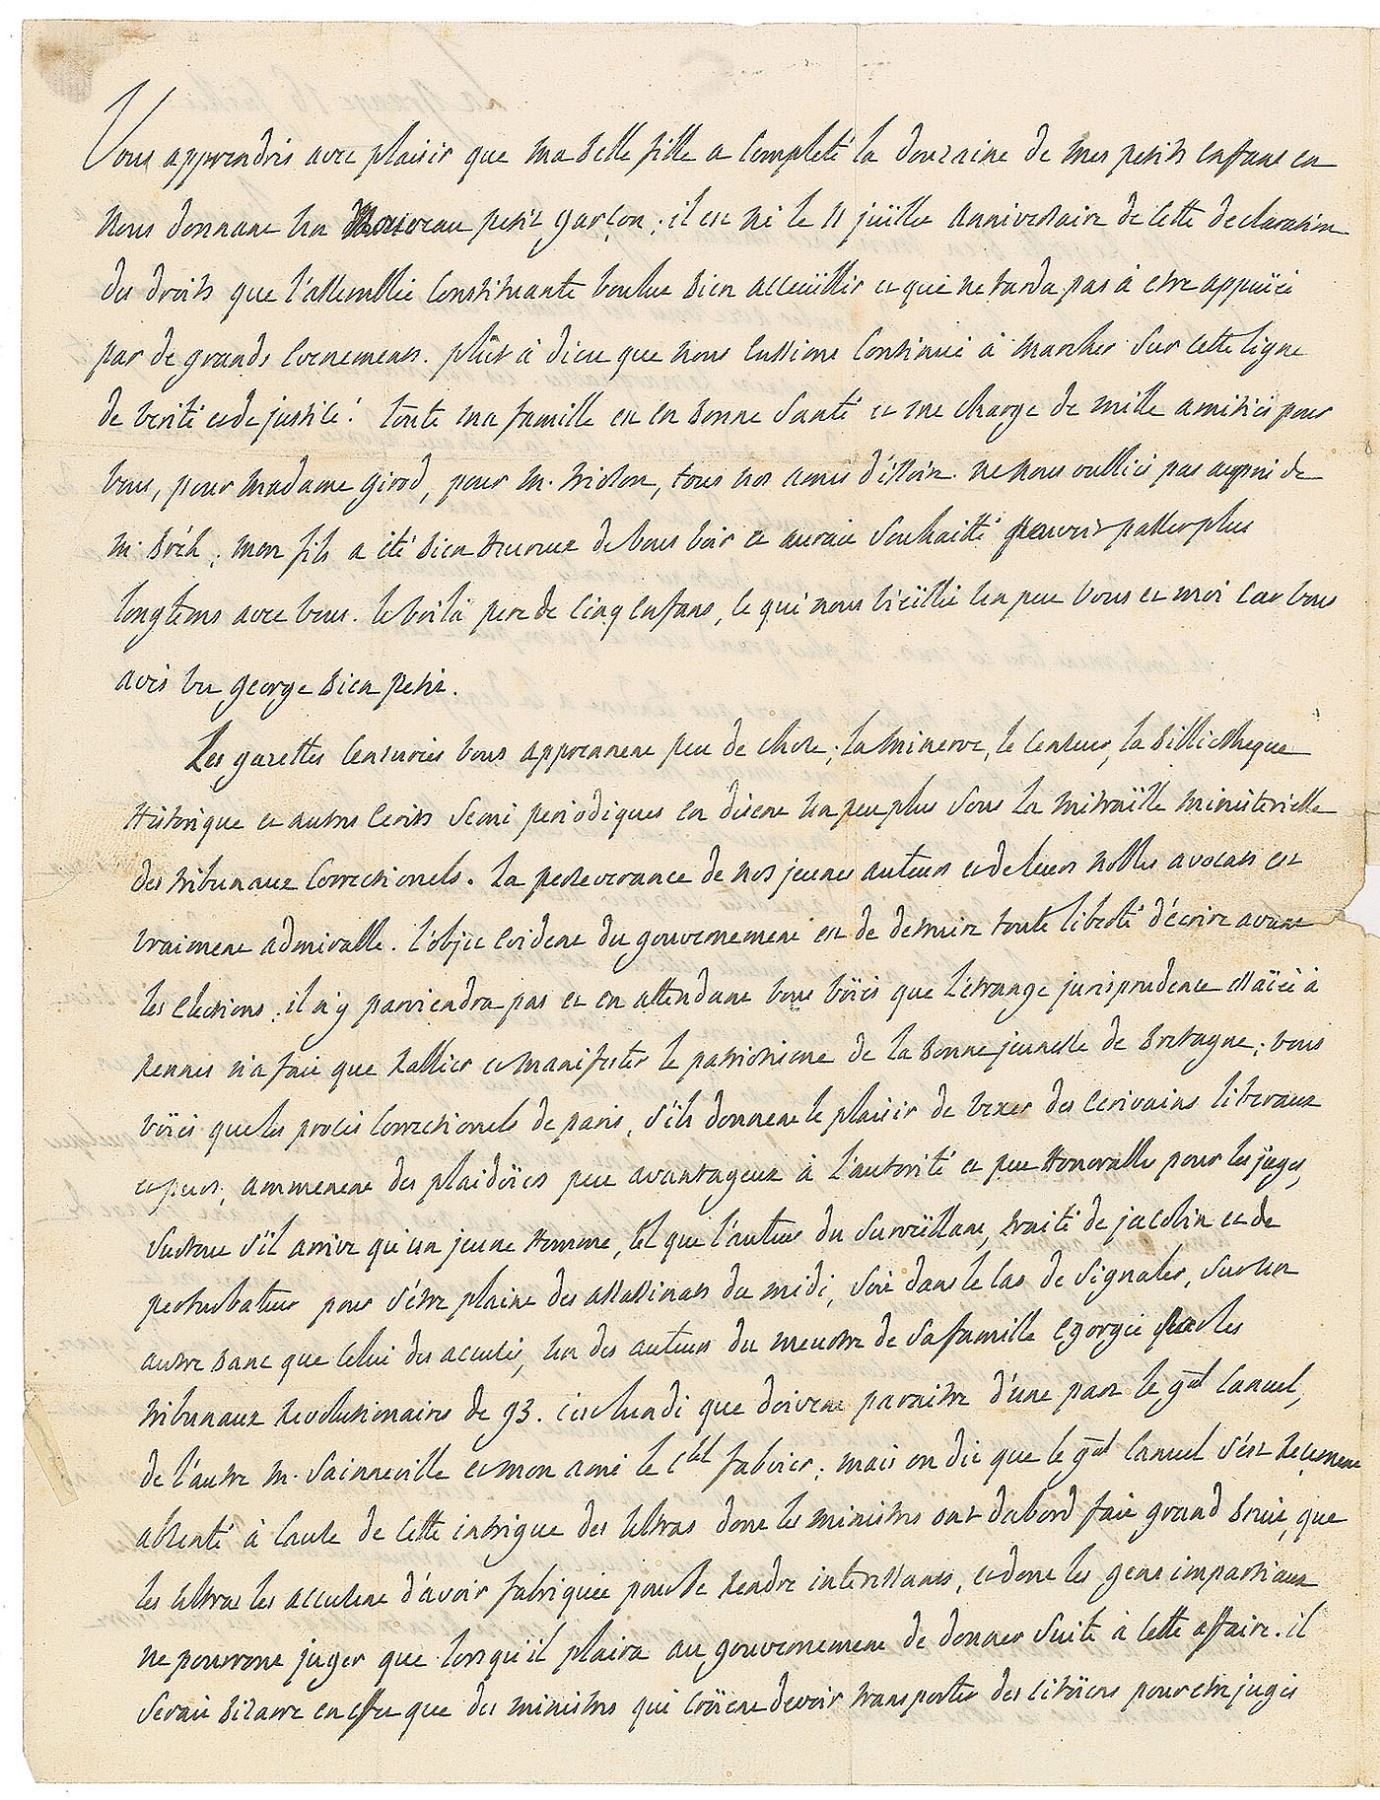 Vous apprendrés avec plaisir que ma belle fille a completé la douzaine de mes petits enfans en
nous donnant un Nouveau petit garçon; il est né le 11 juillet anniversaire de cette declaration
des droits que l'assemblée constituante voulut bien accueillir et qui ne tarda pas à etre appuiée
par de grands evenemens. plût à dieu que nous eussions continué à marcher sur cette ligne
de verité et de justice! toute ma famille est en bonne santé et me charge de mille amitiés pour
vous, pour madame girod, pour m. tridon, tous nos amis d'issoire. ne nous oubliés pas auprès de
m. ; mon fils a été bien heureux de vous voir et aurait souhaité pouvoir passer plus
longtems avec vous. le voilà pere de cinq enfans, ce qui nous vieillit un peu vous et moi car vous
avés vu george bien petit.
Les gazettes censurées vous apprennent peu de chose; la minerve, le censeur, la bibliotheque
historique et autres ecrits semi periodiques en disent un peu plus sous la mitraïlle ministerielle
des tribunaux correctionels. la perseverance de nos jeunes auteurs et de leurs nobles avocats est
vraiment admirable. l'objet evident du gouvernement est de detruire toute liberté d'écrire avant
les elections; il n'y parviendra pas et en attendant vous voïés que l'étrange jurisprudence essaïée à
rennes n'a fait que rallier et manifester le patriotisme de la bonne jeunesse de bretagne; vous
voïés que les procès correctionels de paris, s'ils donnent le plaisir de vexer des ecrivains liberaux
et purs, ammenent des plaidoïés peu avantageux à l'autorité et peu honorables pour les juges,
surtout s'il arrive qu'un jeune homme, tel que l'auteur du surveïllant, traité de jacobin et de
perturbateur pour s'être plaint des assassinats du midi, soit dans le cas de signaler, sur un
autre banc que celui des accusés, un des auteurs du meurtre de sa famille egorgée par les
tribunaux revolutionaires de 93. c'est lundi que doivent paraitre d'une part le gal Canuel,
de l'autre m. Sainneville et mon ami le cel fabvier; mais on dit que le gal Canuel s'est recemment
absenté à cause de cette intrigue des ultras dont les ministres ont dabord fait grand bruit, que
les ultras les accusent d'avoir fabriquée pour se rendre interessans, et dont les gens impartiaux
ne pourront juger que lorsqu'il plaira au gouvernement de donner suite à cette affaire. il
serait bizarre en effet que des ministres qui croïent devoir transporter des citoïens pour etre jugés